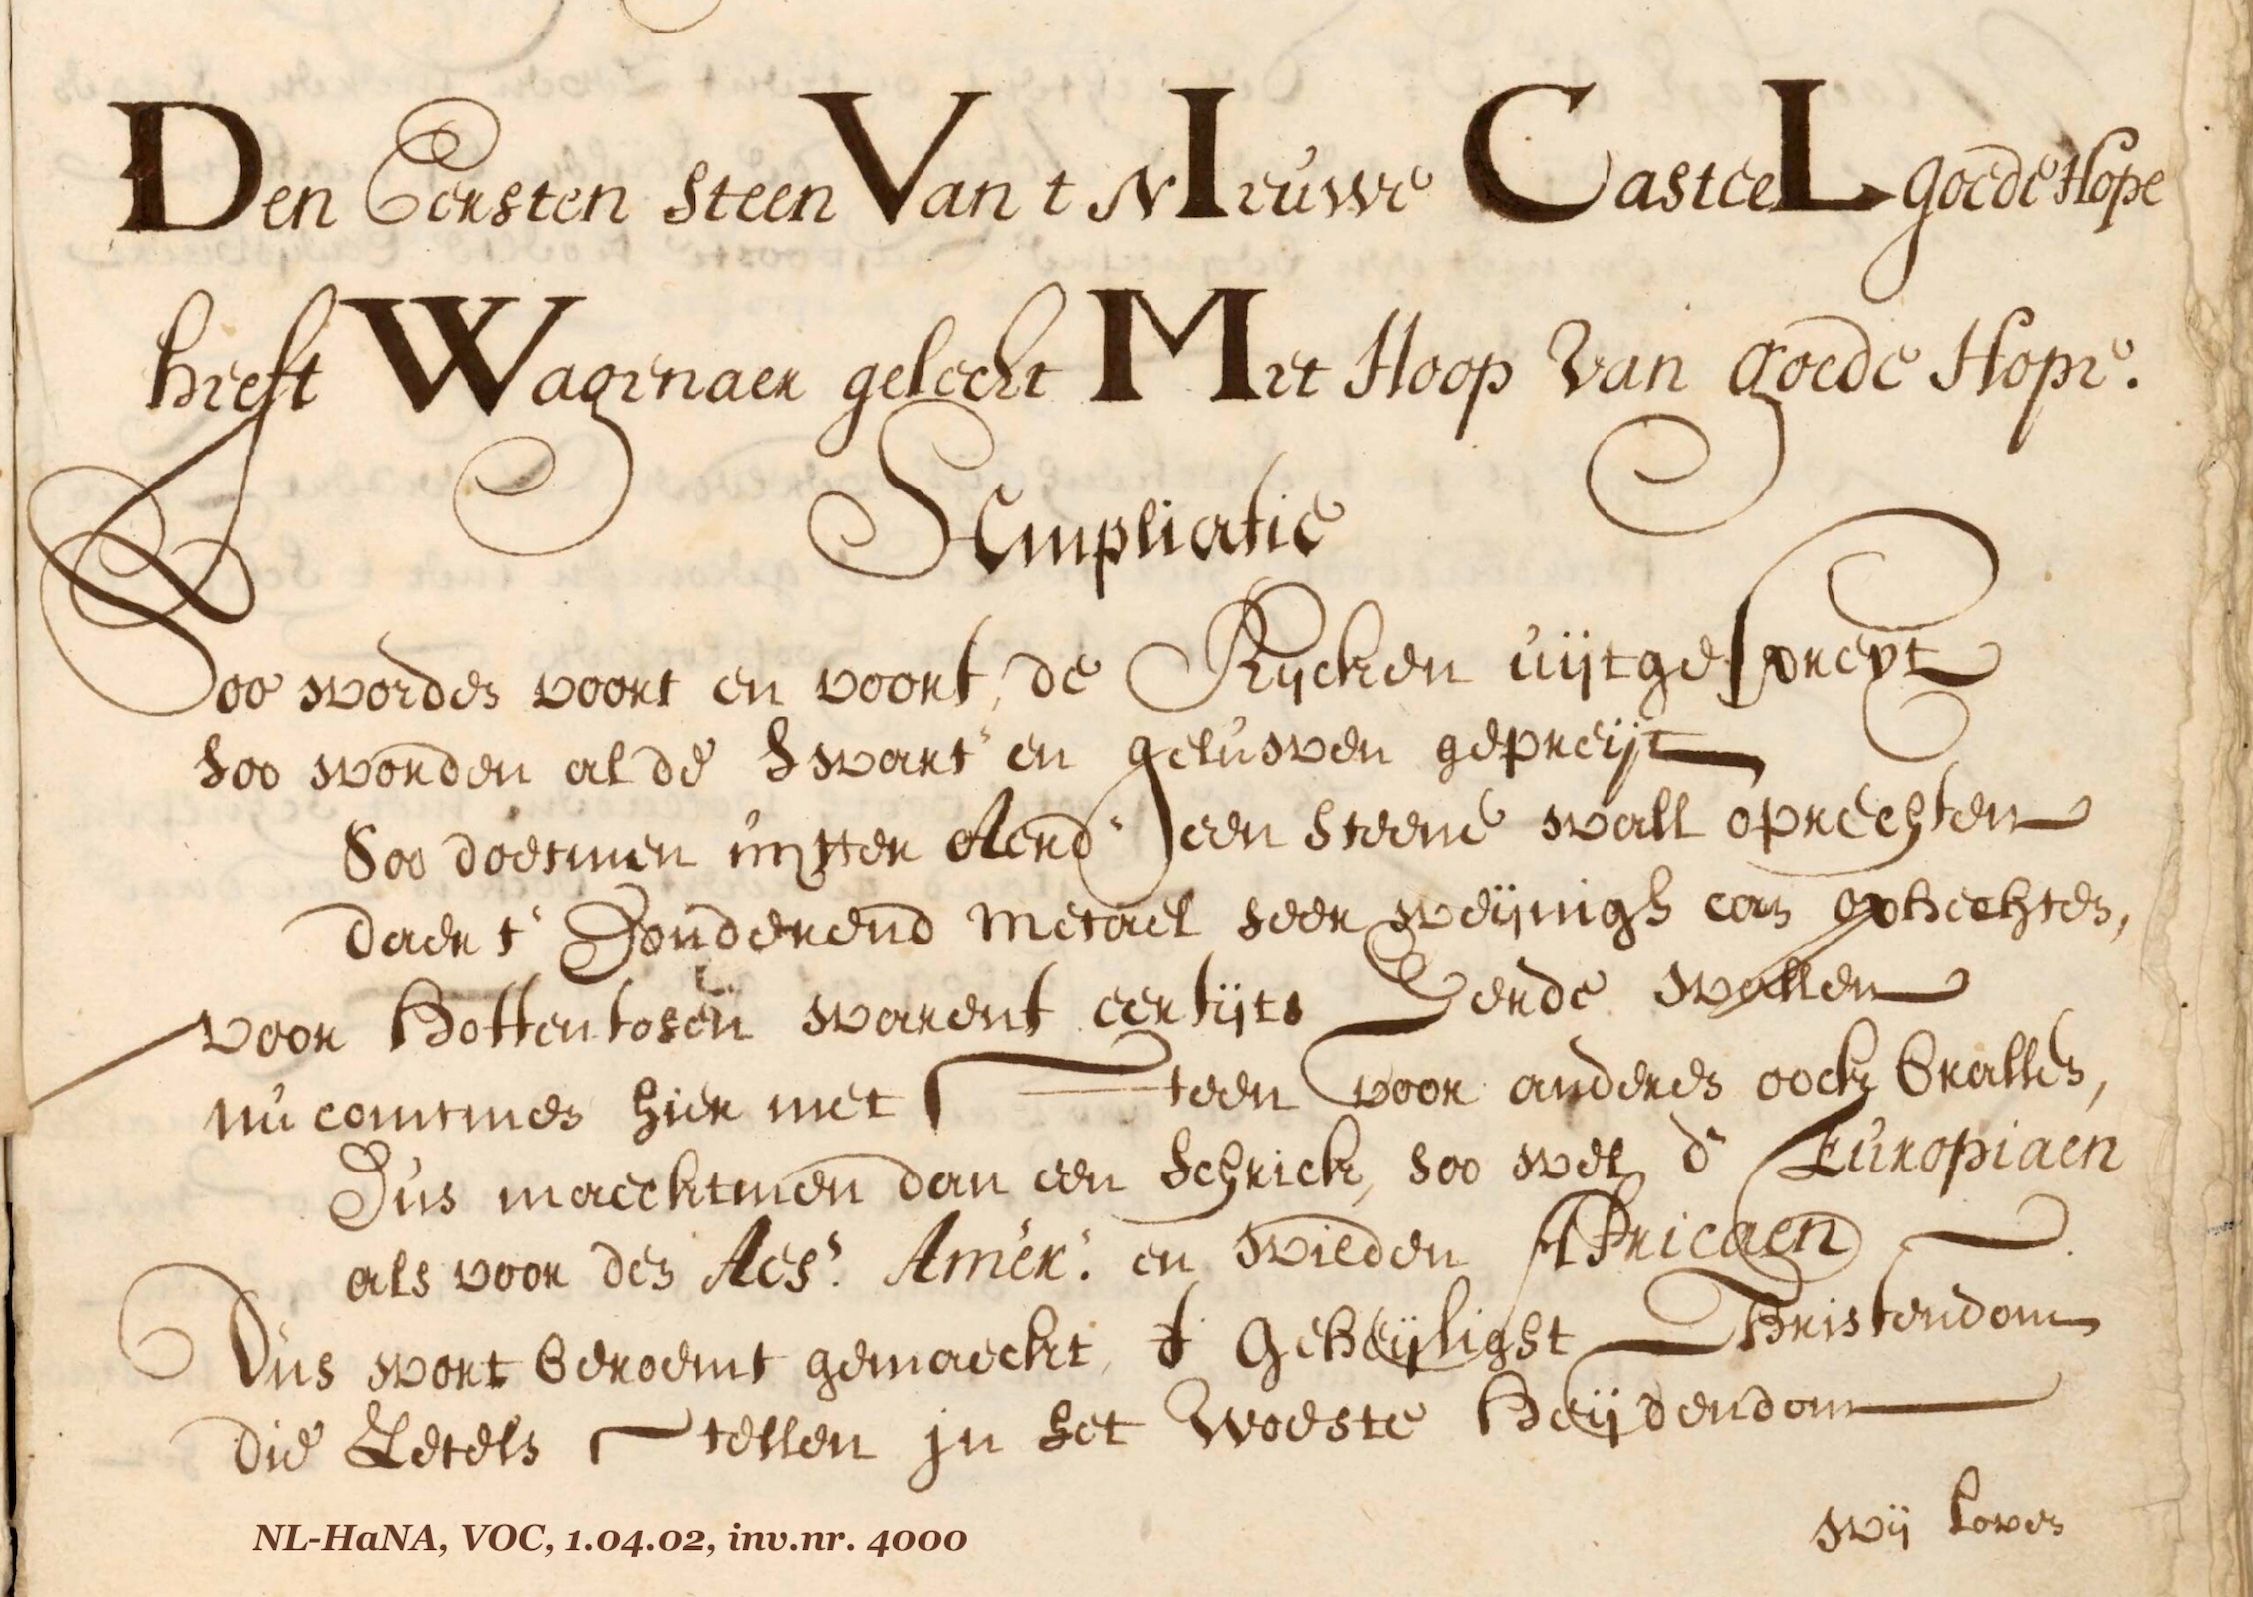 Den Eersten steen Van t NIeuwe CasteeL goede Hope
heeft Wagenaer gelecht Met Hoop van goede Hope.
Ampliatie
Soo worden voort en voort, de Rijcken uijtgespreyt
soo worden al de swart' en geluwen gepreijt
Soo doetmen uijtter Aerd' een steene wall oprechten
daer t' Donderend metael seer weijnigh can ophechten,
voor Hottentosen warent eertijts Eerde wallen
nu comtmen hier met Steen voor anderen oock brallen,
Dus maecktmen dan een schrick, soo wel d' Europiaen
als voor den Aes. Amer. en wieden Africaen
Dus wort beroemt gemaeckt, t Geheijlight Christendom
die Zetels stellen jn het woeste Heijdendom
wij loven
NL-HaNA, VOC, 1.04.02, inv.nr. 4000